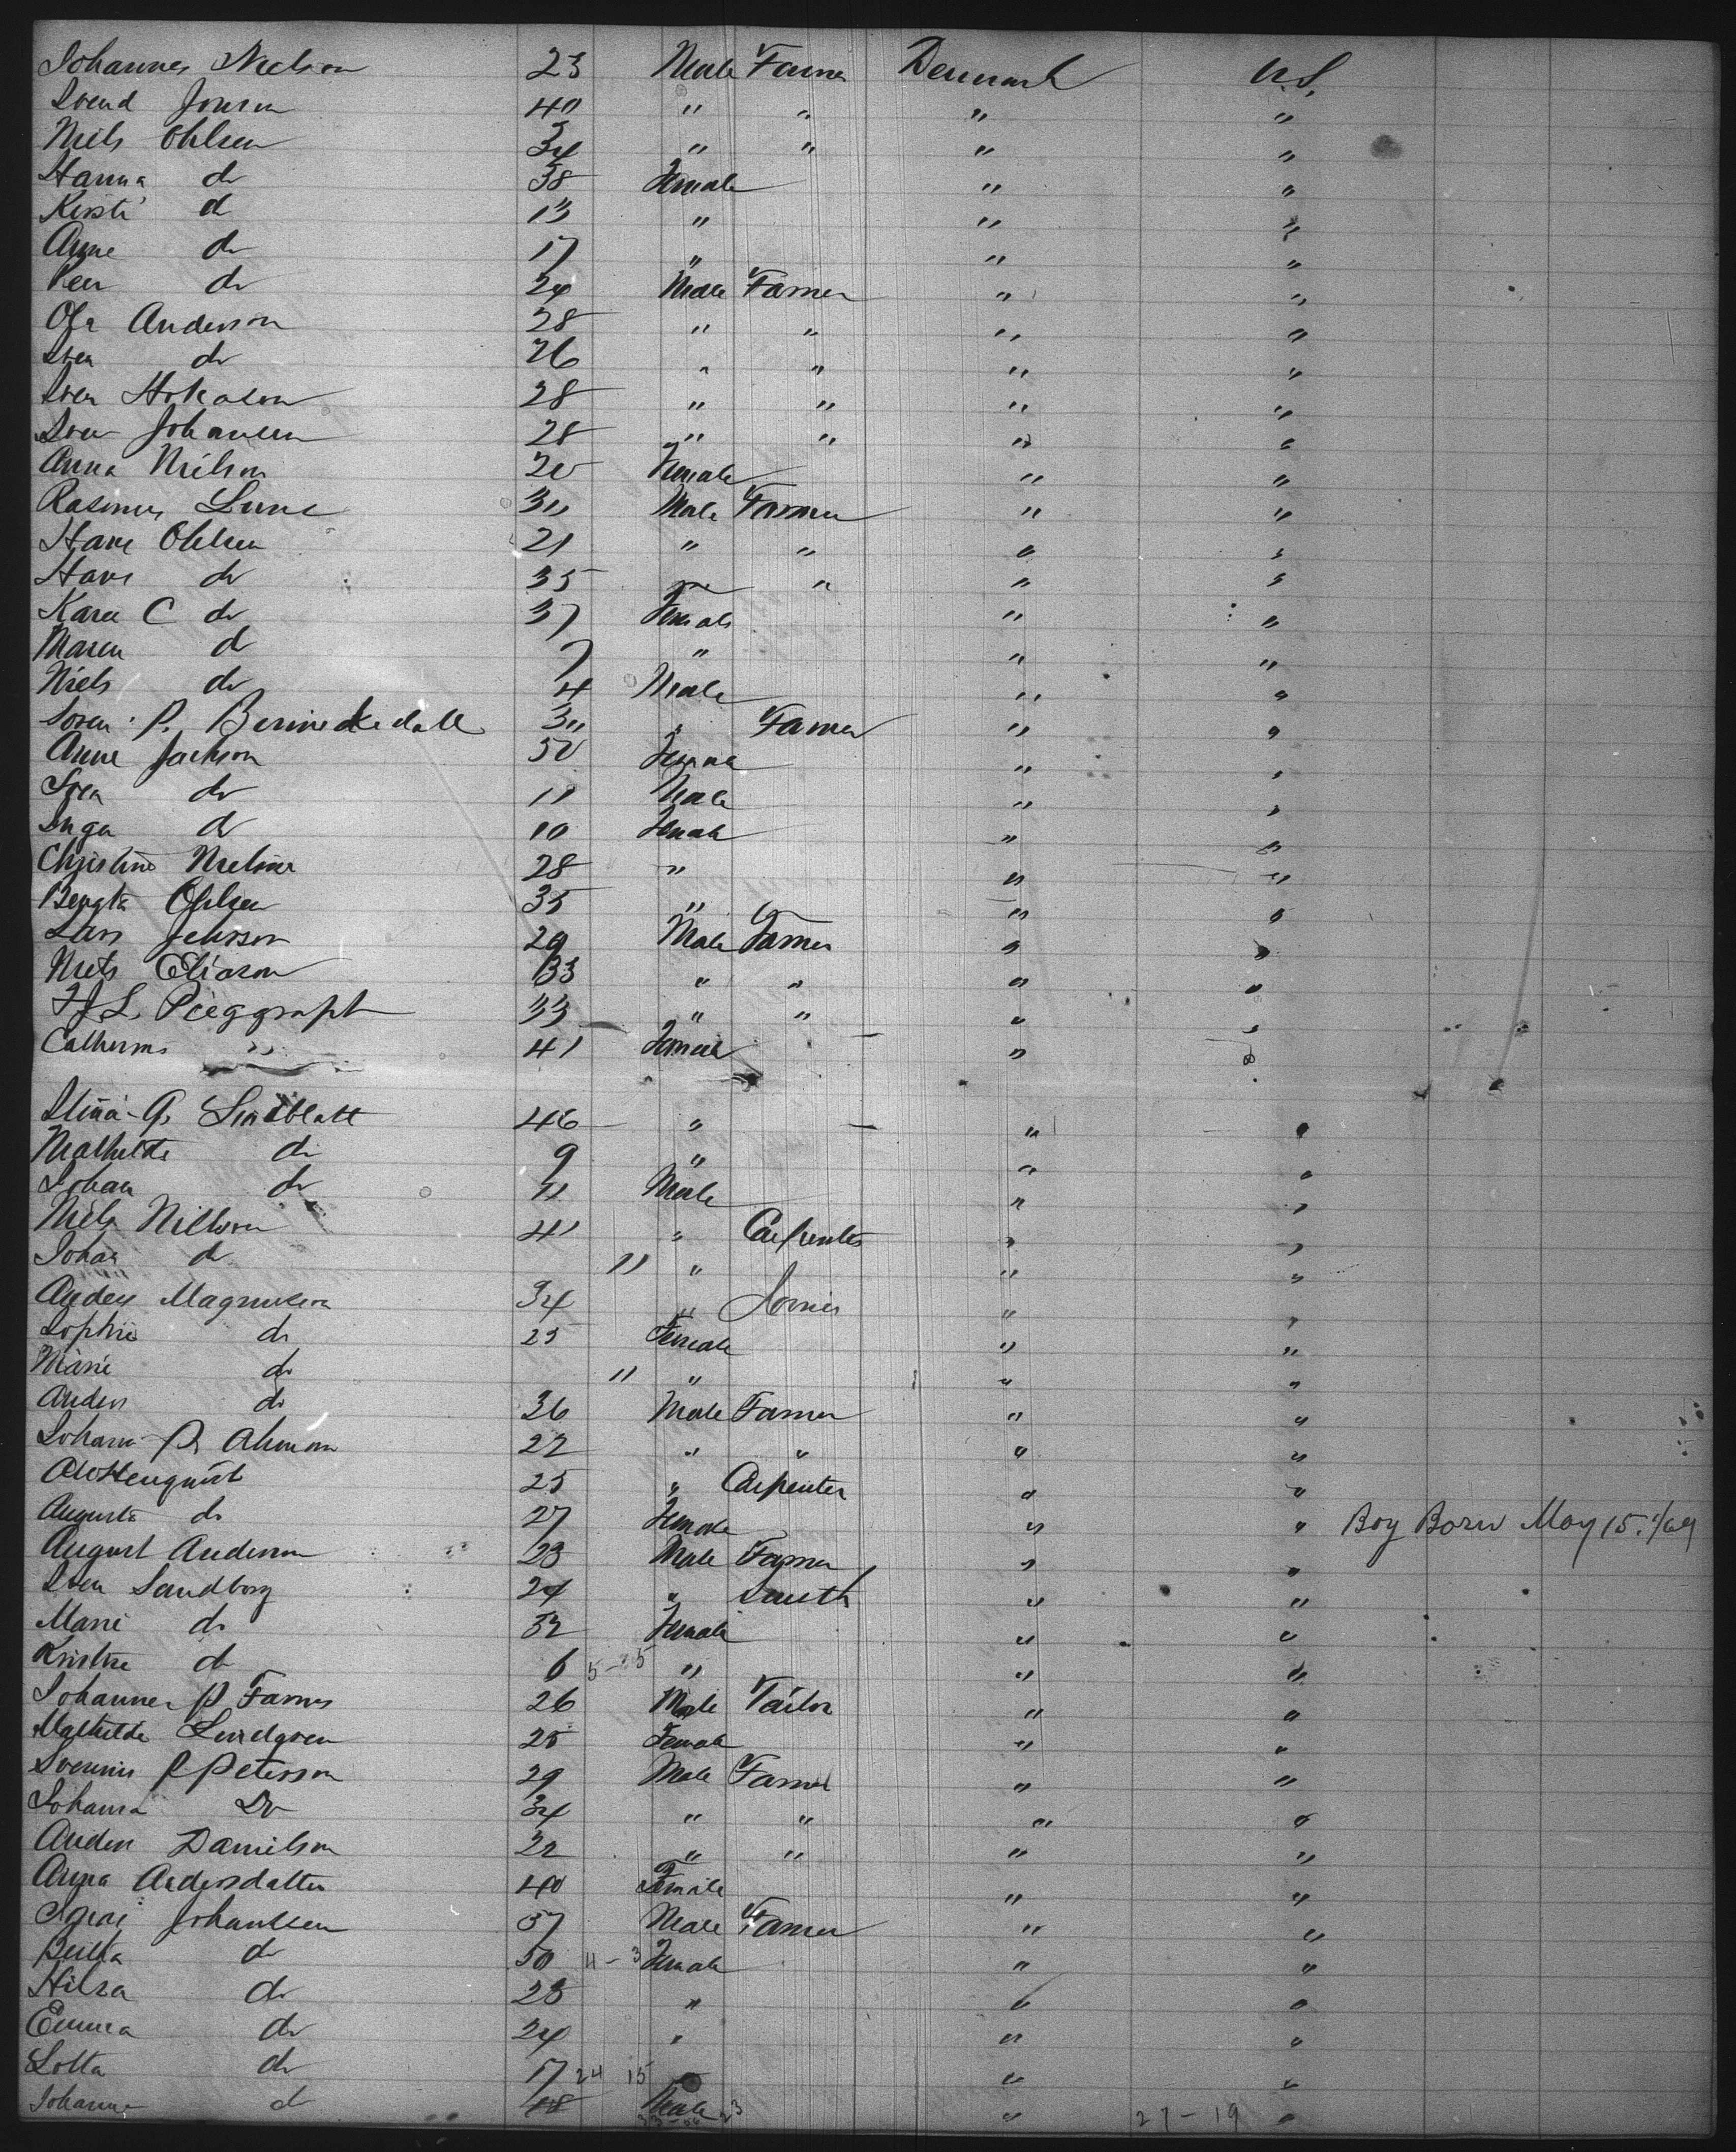 Johannes Nielson 23 Male Farmer Denmark U.S.
Svend Jonson 40 " " " "
Niels Ohlsen 34 " " " "
Hanna do 38 Female " "
Kersti do 13 " " "
Anne do 17 " " "
Peer do 24 Male Farmer " "
Ola Anderson 28 " " " "
Sven do 26 " " " "
Sven Hokason 28 " " " "
Sven Johansen 28 " " " "
Anna Nielson 20 Female " "
Rasmus Lune 30 Male Farmer " "
Hans Ohlsen 21 " " " "
Hans do 35 " " " "
Kara C do 37 Female " "
Maren do 7 " " "
Niels do 4 Male " "
Soren P. 30 " Farmer " "
Anne Jackson 50 Female " "
Sven do 11 Male " "
Inga do 10 Female " "
Christine 28 " " "
Bengta Ohlsen 35 " " "
Lars Jensson 29 Male Farmer " "
Niels Eliason 33 " " " "
H.J.L. Pieggraph 33 " " " "
Catherine " 41 Female " "
Stina G. Lindblatt 46 " " "
Mathilde do 9 " " "
Johan do 11 Male " "
Niels Nillson 41 " Carpenter " "
Johan do 11 " " "
Anders Magnusson 34 " " "
Sophie do 25 Female " "
Marie do 11 " " "
Anders do 36 Male Farmer " "
Johann P. Ahmann 22 " " " "
25 " Carpenter " "
Augusta do 27 Female " " Boy Born May 15. /69
August Anderson 23 Male Farmer " "
Sven Sandborg 24 " Smith " "
Marie do 32 Female " "
Kristine do 6 5-25 " " "
Johannes P Farms 26 Male Tailor " "
Mathilde Lindgren 25 Female " "
P Peterson 29 Male Farmer " "
Johanna Do 34 " " " "
Anders Danielson 22 " " " "
Anna Andersdatter 40 Female " "
Johanssen 57 Male Farmer " "
do 50 11-3 Female " "
do 23 " " "
Emma do 24 " " "
Lotta do 17 24 15 " " "
Johanne do 18 Male 23 " 27-19 "